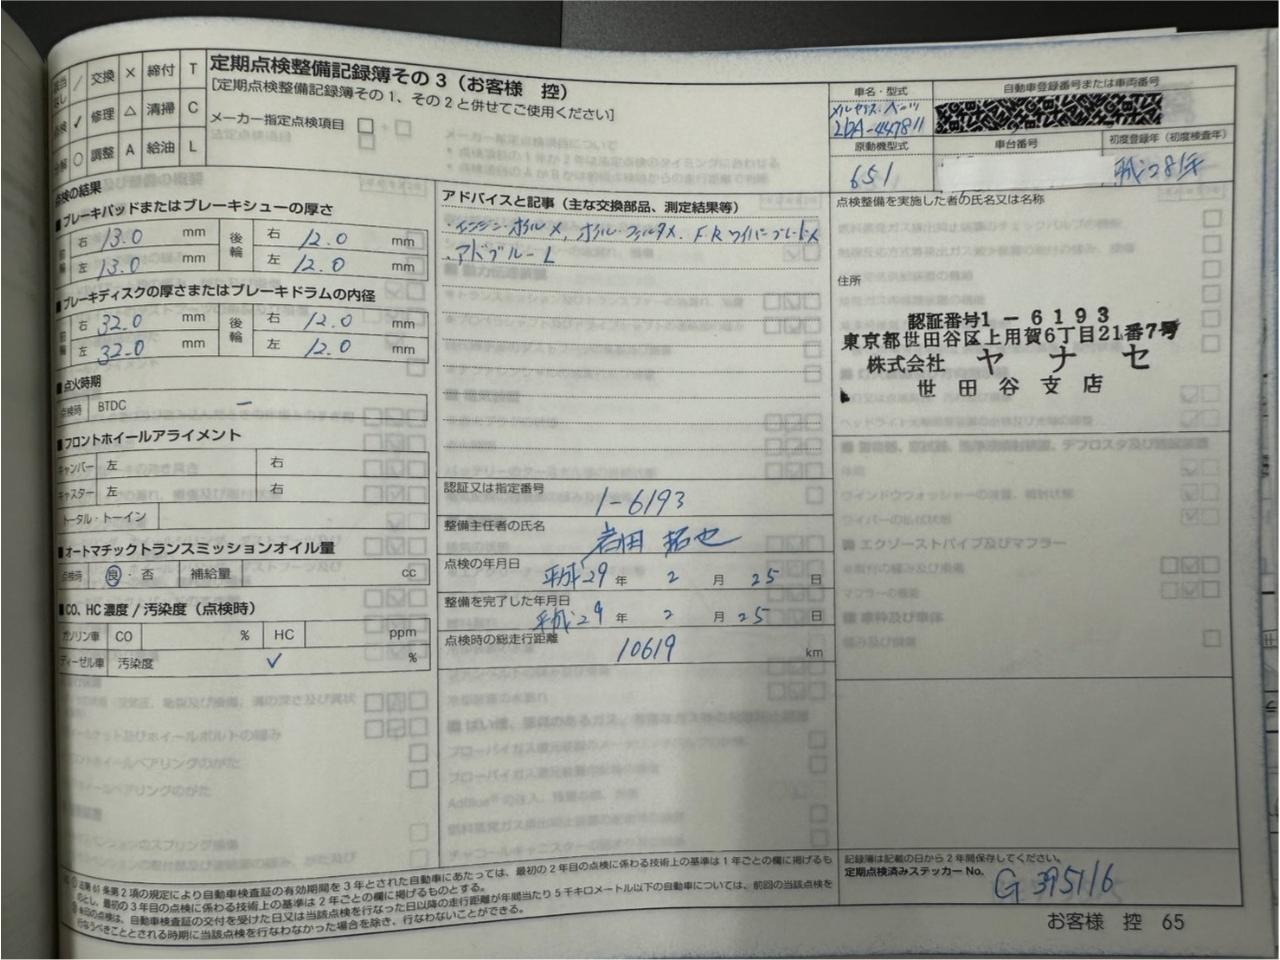 交換 × 締付 T
✓ 修理 △ 清掃 C
○ 調整 A 給油 L
定期点検整備記録簿その3(お客様 控)
[定期点検整備記録簿その1、その2と併せてご使用ください]
メーカー指定点検項目 □ + □
車名・型式
メルセデス・ベンツ
LDA-447811
自動車登録番号または車両番号
原動機型式
651
車台番号
初度登録年(初度検査年)
平成28年
点検の結果
■ブレーキパッドまたはブレーキシューの厚さ
右 13.0 mm 後輪 右 12.0 mm
左 13.0 mm 左 12.0 mm
■ブレーキディスクの厚さまたはブレーキドラムの内径
右 32.0 mm 後輪 右 12.0 mm
左 32.0 mm 左 12.0 mm
■点火時期
点検時 BTDC ー
■フロントホイールアライメント
キャンバー 左 右
キャスター 左 右
トータル・トーイン
■オートマチックトランスミッションオイル量
点検時 良・否 補給量 cc
■CO、HC 濃度/汚染度(点検時)
ガソリン車 CO % HC ppm
ディーゼル車 汚染度 ✓ %
アドバイスと記事(主な交換部品、測定結果等)
・エンジンオイル×, オイルフィルタ×. F.R ワイパーブレード×
・アドブルー L
認証又は指定番号
1-6193
整備主任者の氏名
岩田 拓也
点検の年月日
平成29年 2月 25日
整備を完了した年月日
平成29年 2月 25日
点検時の総走行距離
10619 km
点検整備を実施した者の氏名又は名称
住所
認証番号1-6193
東京都世田谷区上用賀6丁目21番7号
株式会社 ヤナセ
世田谷支店
第61条第2項の規定により自動車検査証の有効期間を3年とされた自動車にあたっては、最初の2年目の点検に係わる技術上の基準は1年ごとの欄に掲げるも
のとし、最初の3年目の点検に係わる技術上の基準は2年ごとの欄に掲げるものとする。
の点検は、自動車検査証の交付を受けた日又は当該点検を行なった日以降の走行距離が年間当たり5千キロメートル以下の自動車については、前回の当該点検を
行なうべきこととされる時期に当該点検を行なわなかった場合を除き、行なわないことができる。
記録簿は記載の日から2年間保存してください。
定期点検済みステッカー No. G 395116
お客様 控 65